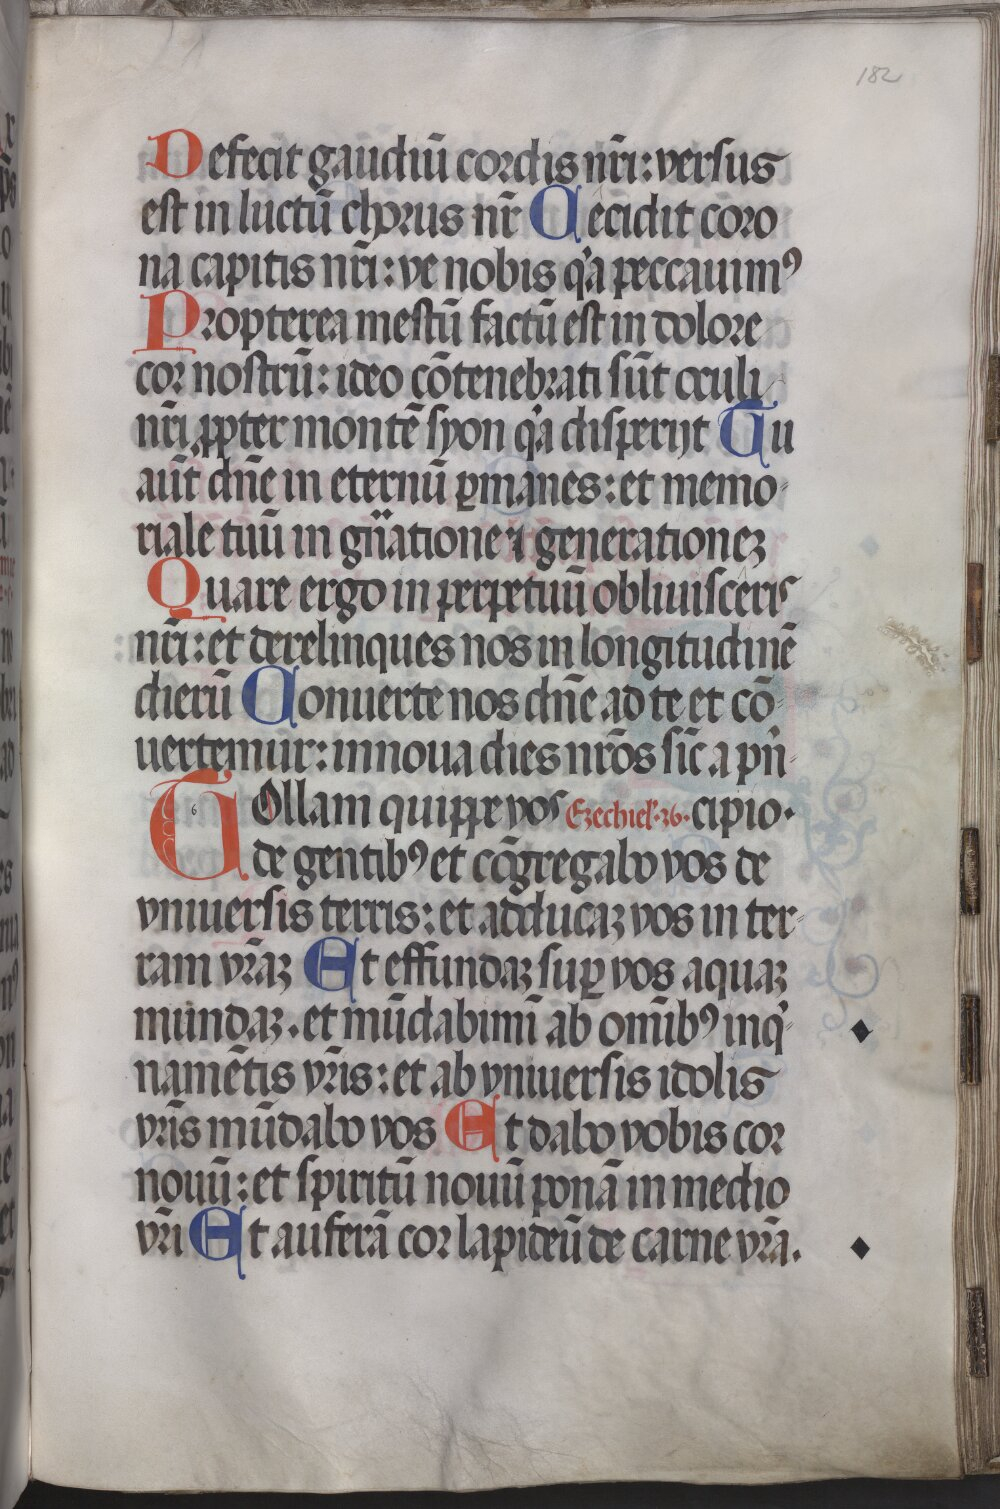 182
Defecit gaudiū cordis nr̄i: versus
est in luctū chorus nr̄ Cecidit coro
na capitis nr̄i: ve nobis qͥa peccauimꝰ
Propterea mestū factū est in dolore
cor nostrū: ideo cōtenebrati sūt oculi
nr̄i ꝓpter montē syon qͥa disperijt Tu
aūt dn̄e in eternū ꝑmanes: et memo-
riale tuū in gn̄atione ⁊ generationeꝫ
Quare ergo in perpetuū obliuisceris
nr̄i: et derelinques nos in longitudinē
dierū Conuerte nos dn̄e ad te et cō-
uertemur: innoua dies nr̄os sic̄ a pn̄-
Tollam quippe vos Ezechiel.36. cipio.
de gentibꝰ et cōgregabo vos de
vniuersis terris: et adducaꝫ vos in ter-
ram vr̄aꝫ Et effundaꝫ suꝑ vos aquaꝫ
mundaꝫ. et mūdabimī ab om̄ibꝰ inqͥ-
namētis vr̄is: et ab vniuersis idolis
vr̄is mūdabo vos Et dabo vobis cor
nouū: et spiritū nouū ponā in medio
vr̄i Et auferā cor lapideū de carne vr̄a.